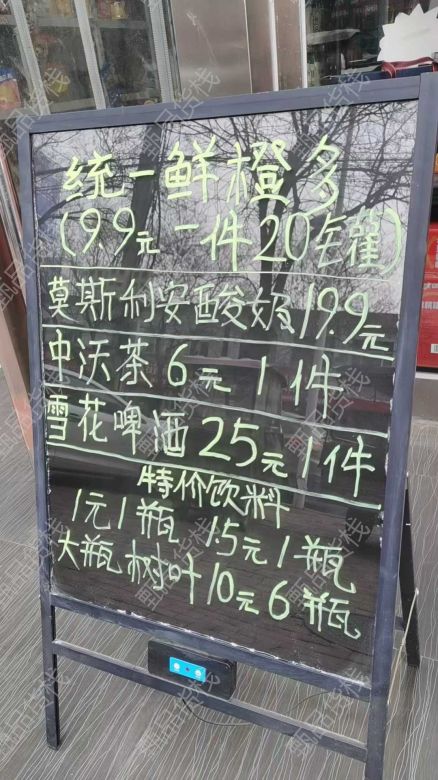 统一鲜橙多
(9.9元一件20罐)
莫斯利安酸奶19.9元
中沃茶6元1件
雪花啤酒25元1件
特价饮料
1元1瓶 1.5元1瓶
大瓶树叶10元6瓶
甄品货栈